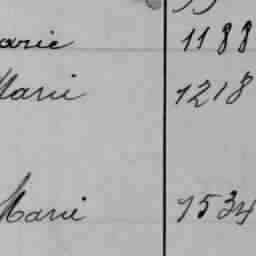 arie 1188
Marie 1218
Marie 1534